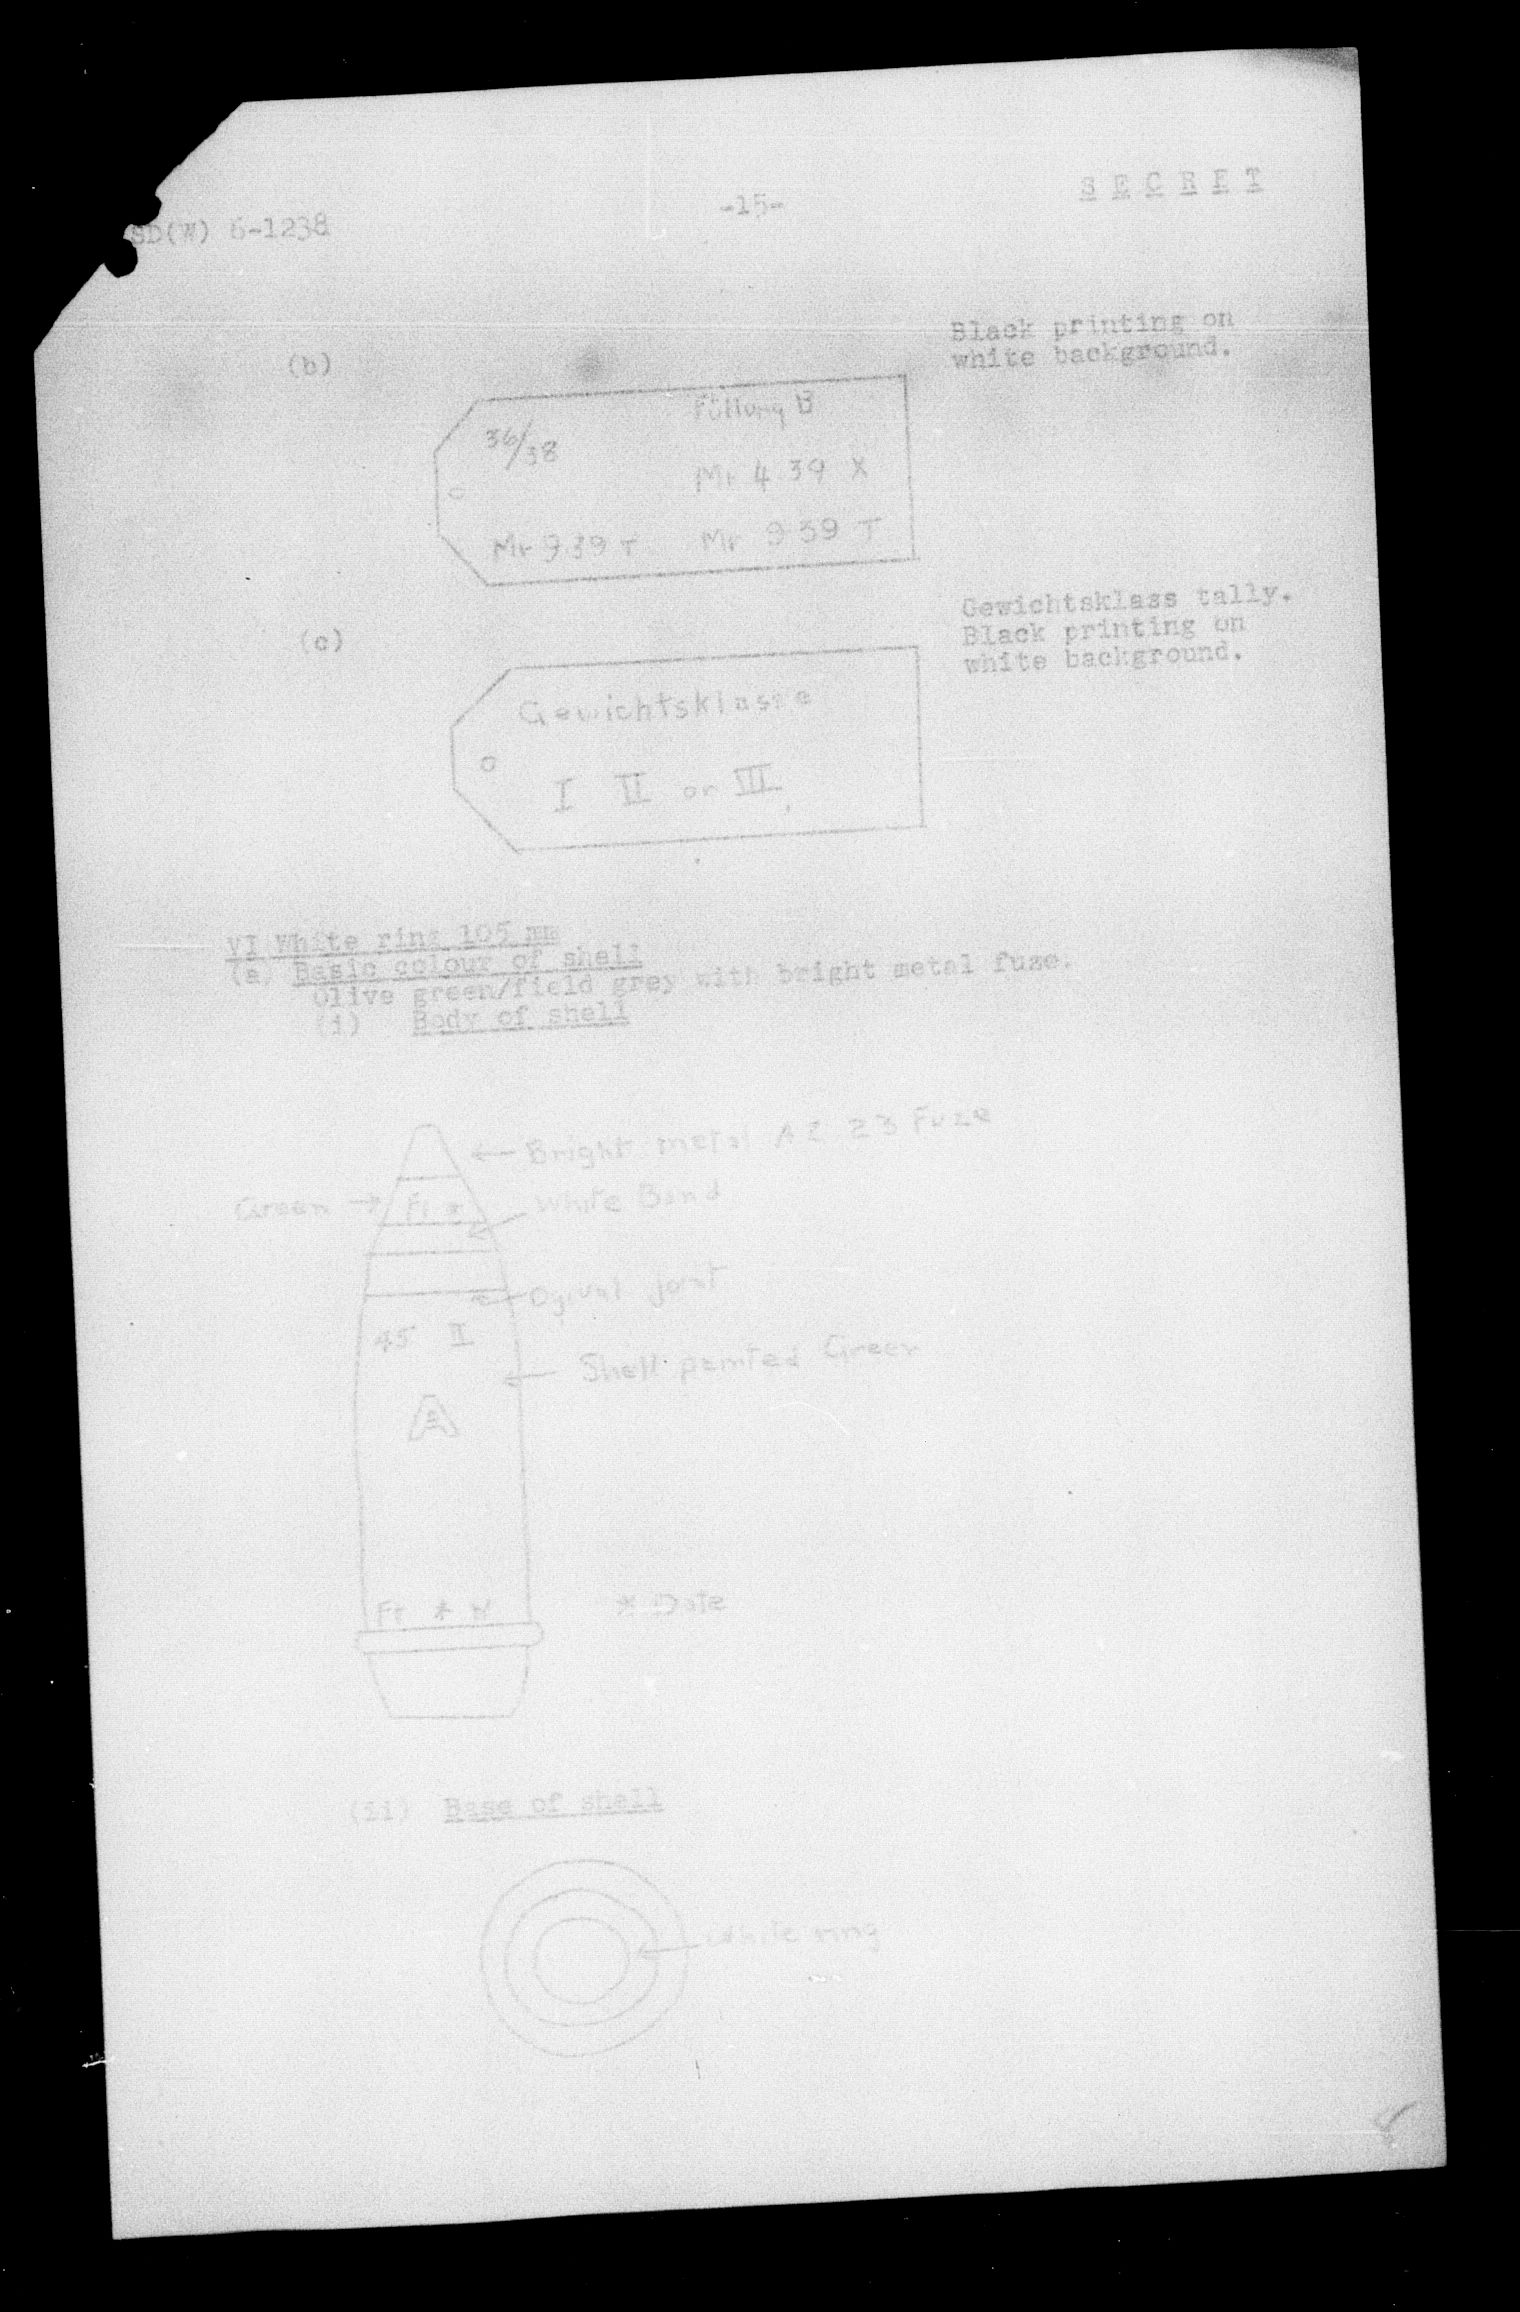 SD(W) 6-1238
-15-
SECRET
Black printing on
white background.
(b)
Füllung B
36/38
Mr 4 39 X
Mr 9 39 T
Mr 9 39 T
Gewichtsklass tally.
Black printing on
white background.
(c)
Gewichtsklasse
I II or III
VI White ring 105 mm
(a) Basic colour of shell
Olive green/field grey with bright metal fuze.
(i) Body of shell
Bright metal AZ 23 Fuze
Green
White Band
Ogival joint
45 II
Shell painted Green
Fr * N
* Date
(ii) Base of shell
White ring